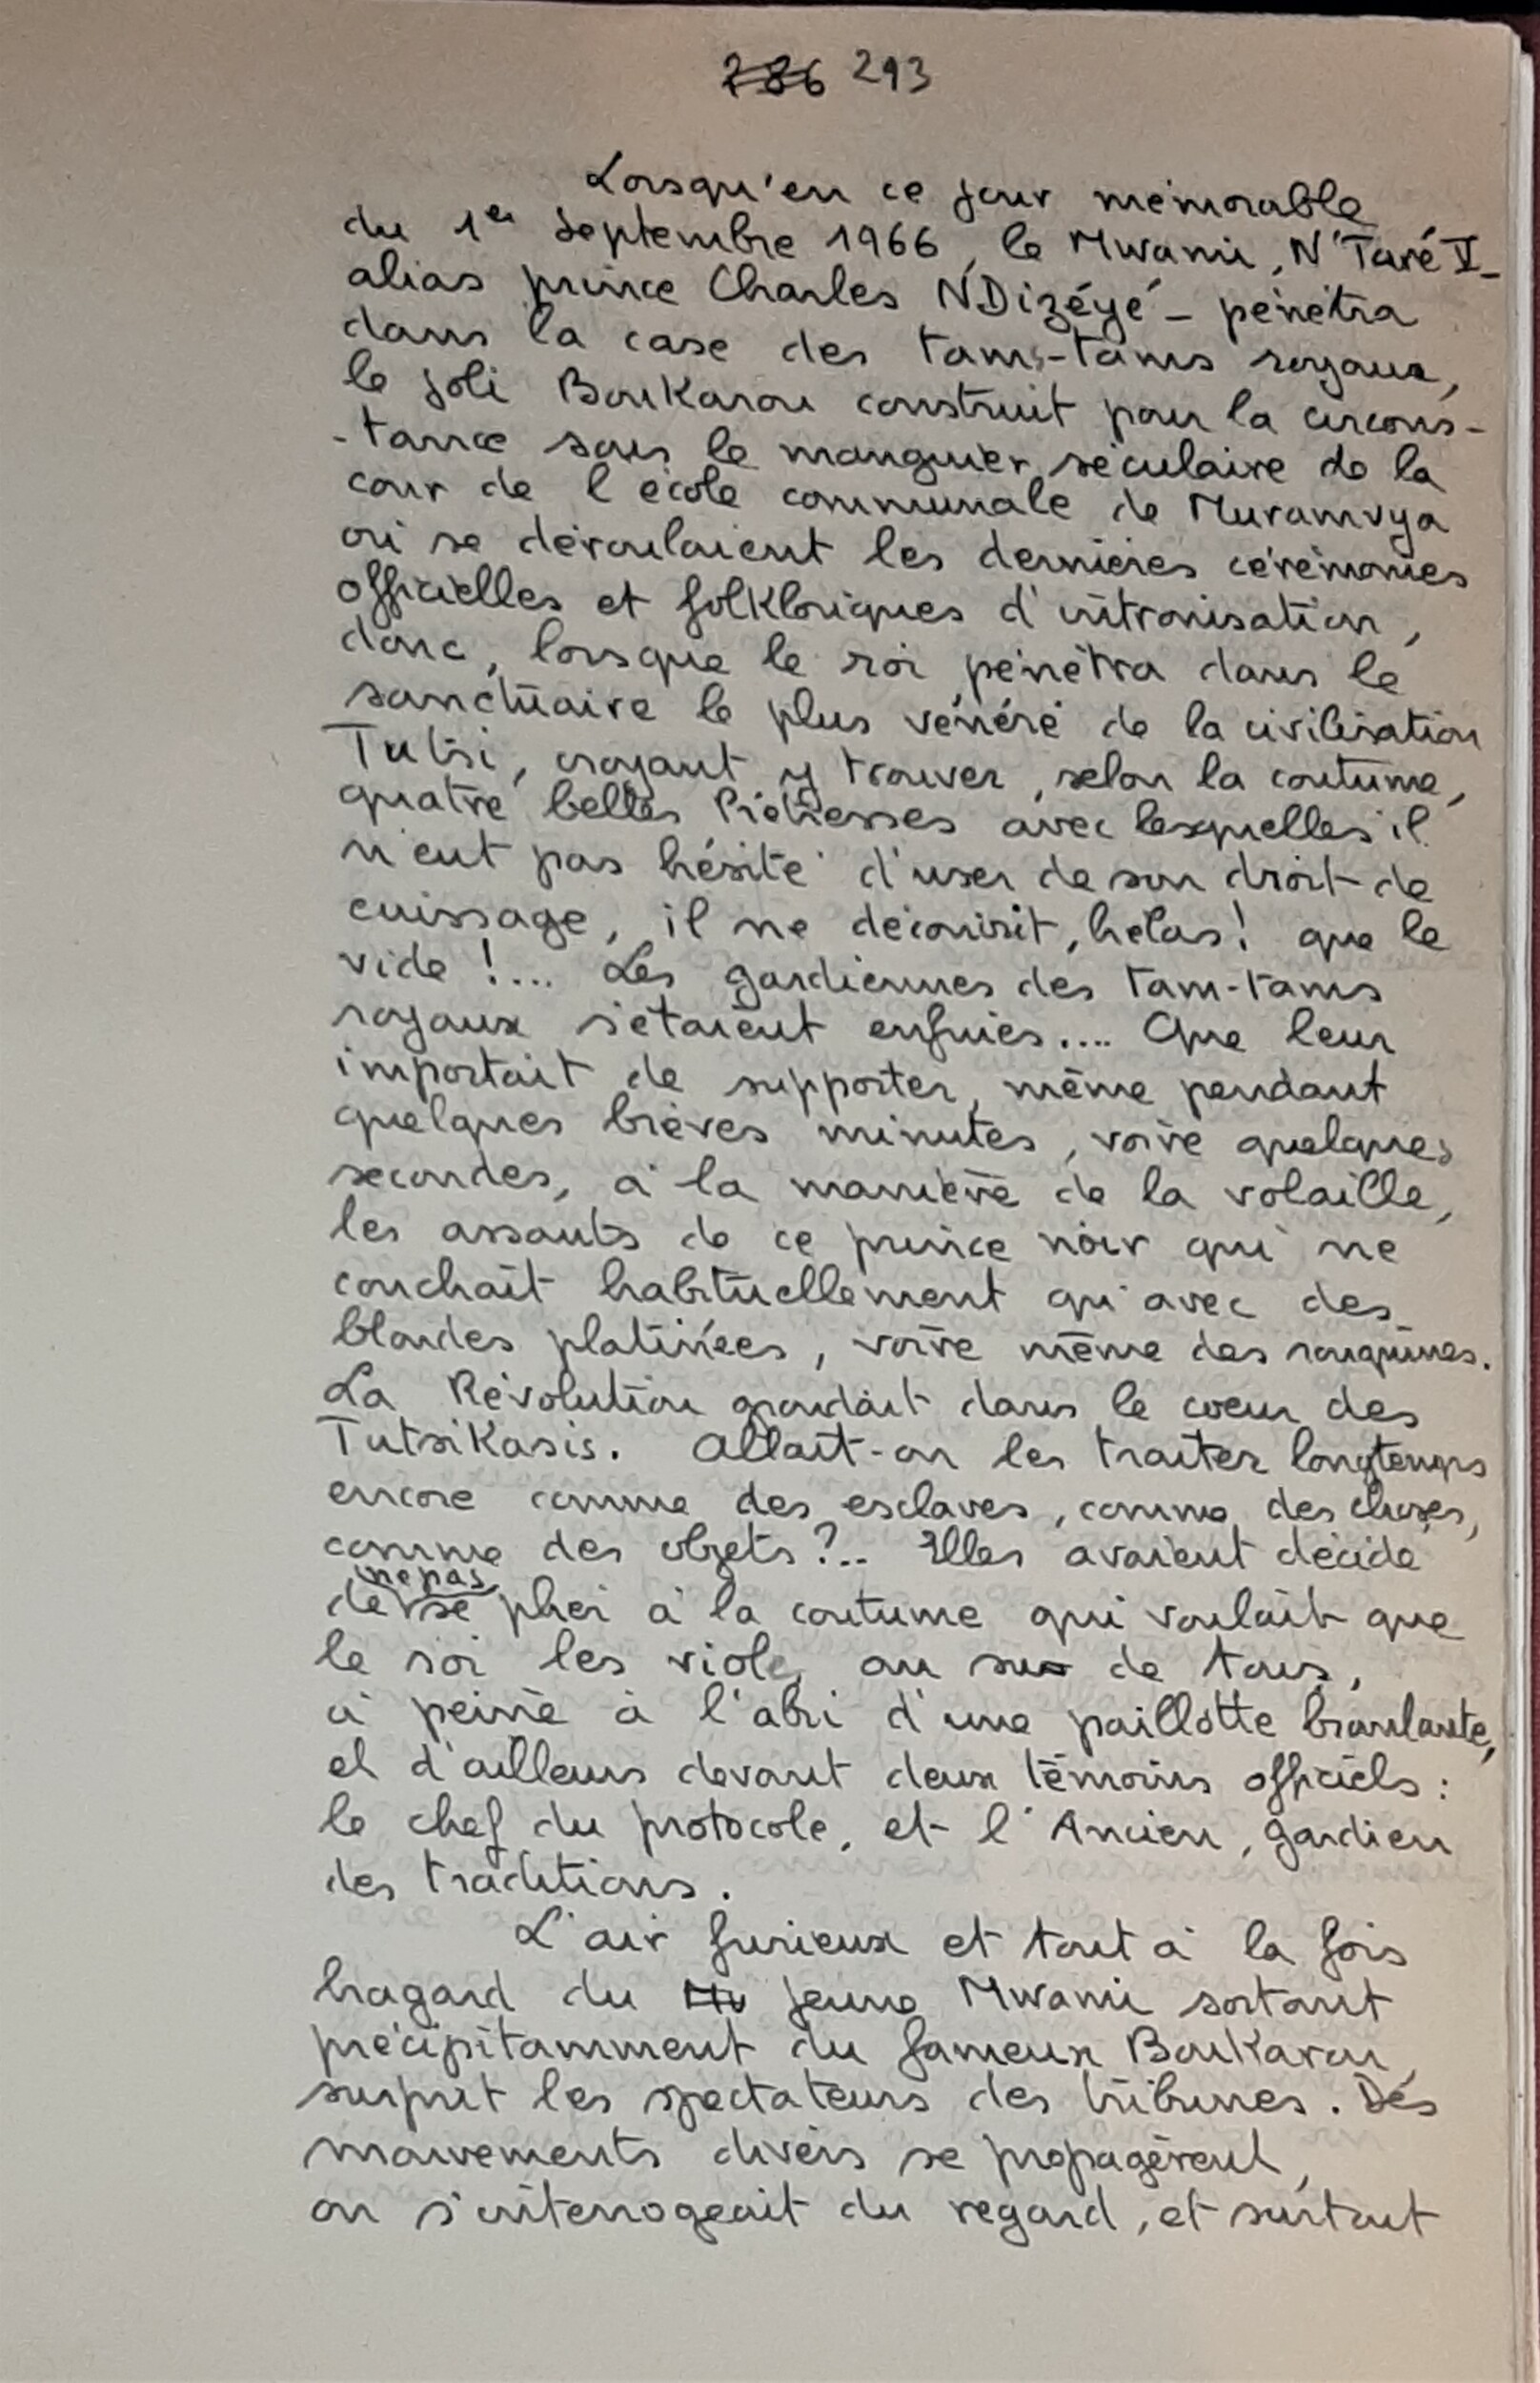 286 293
Lorsqu'en ce jour mémorable
du 1er Septembre 1966, le Mwami, N'Taré V -
alias prince Charles N'Dizéyé - pénétra
dans la case des tams-tams royaux,
le joli Boukarou construit pour la circons-
-tance sous le manguier séculaire de la
cour de l'école communale de Muramvya
où se déroulaient les dernières cérémonies
officielles et folkloriques d'intronisation,
donc, lorsque le roi pénétra dans le
sanctuaire le plus vénéré de la civilisation
Tutsi, croyant y trouver, selon la coutume,
quatre belles Prêtresses avec lesquelles il
n'eut pas hésité d'user de son droit de
cuissage, il ne découvrit, hélas! que le
vide !... Les gardiennes des tam-tams
royaux s'étaient enfuies.... Que leur
importait de supporter, même pendant
quelques brèves minutes, voire quelques
secondes, à la manière de la volaille,
les assauts de ce prince noir qui ne
couchait habituellement qu'avec des
blondes platinées, voire même des rouquines.
La Révolution grondait dans le coeur des
TutsiKasis. Allait-on les traiter longtemps
encore comme des esclaves, comme des choses,
comme des objets ?.. Elles avaient décidé
de ne pas se plier à la coutume qui voulait que
le roi les viole, au su de tous,
à peine à l'abri d'une paillotte branlante,
et d'ailleurs devant deux témoins officiels :
le chef du protocole, et l'Ancien, gardien
des traditions.
L'air furieux et tout à la fois
hagard du jeune Mwami sortant
précipitamment du fameux Boukarou,
surprit les spectateurs des tribunes. Des
mouvements divers se propagèrent,
on s'interrogeait du regard, et surtout